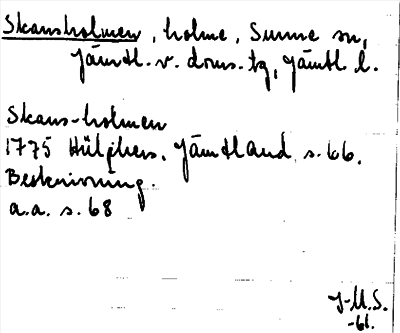 Skansholmen, holme, Sunne sn,
Jämtl. v. doms. tg, Jämtl. l.
Skans-holmen
1775 Hülphers, Jämtland, s. 66.
Beskrivning.
a.a. s. 68
J-M.S.
-61.